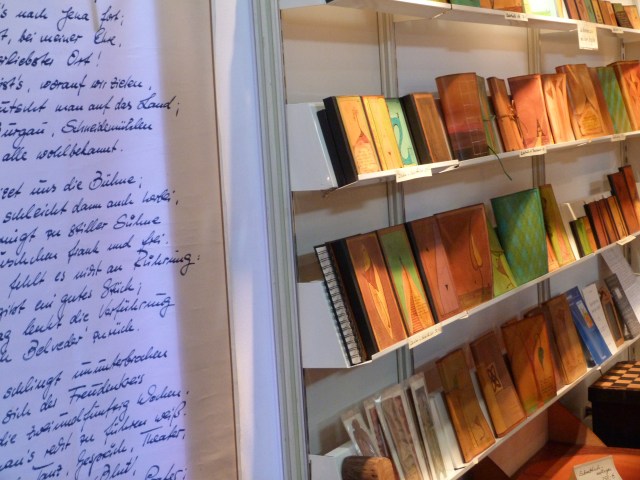 's nach Jena fort;
t, bei meiner Ehre,
rliebster Ort!
ist's, worauf wir zielen,
utscht man auf das Land;
Burgau, Schneidemühlen
alle wohlbekannt.
izet uns die Bühne;
schleicht dann auch herbei,
ringt zu stiller Sühne
uschchen frank und frei.
fehlt es nicht an Rührung:
gibt ein gutes Stück;
ag lenkt die Verführung
h Belveder' zurück.
schlingt ununterbrochen
sich der Freudenkreis
die zweiundfünfzig Wochen,
man's recht zu führen weiß.
Tanz, Gespräch, Theater,
Blut;